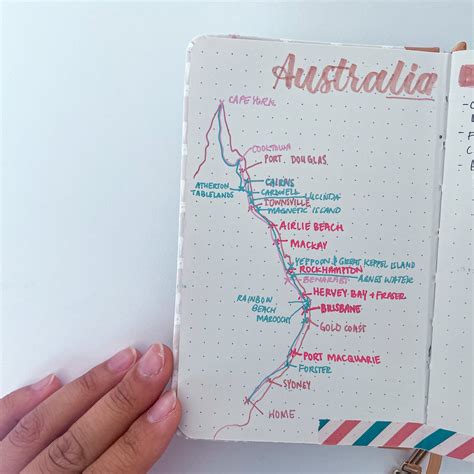 Australia
CAPE YORK
COOKTOWN
PORT DOUGLAS
CAIRNS
ATHERTON
TABLELANDS
CARDWELL
LUCINDA
TOWNSVILLE
MAGNETIC ISLAND
AIRLIE BEACH
MACKAY
YEPPOON & GREAT KEPPEL ISLAND
ROCKHAMPTON
AGNES WATER
BENARABY
HERVEY BAY + FRASER
RAINBOW
BEACH
BRISBANE
MAROOCHY
GOLD COAST
PORT MACQUARIE
FORSTER
SYDNEY
HOME